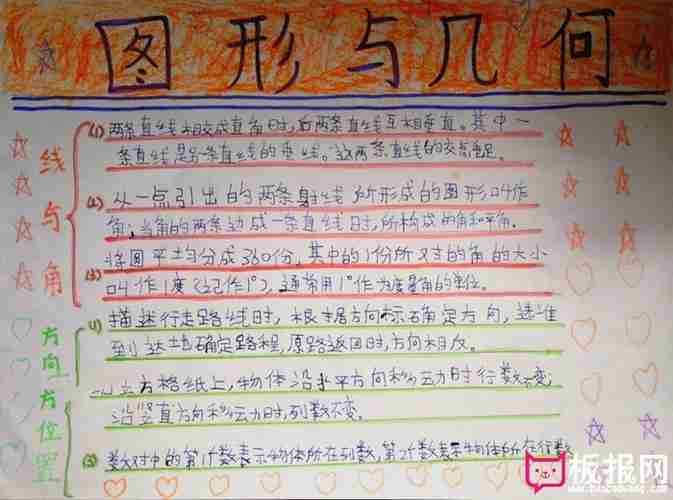 图形与几何
线与角
(1) 两条直线相交成直角时,这两条直线互相垂直。其中一
条直线是另一条直线的垂线。这两条直线的交点垂足。
(2) 从一点引出的两条射线所形成的图形叫作
角,当角的两条边成一条直线时,所构成的角和平角。
(3) 将圆平均分成360份,其中的1份所对的角的大小
叫作1度(记作1°),通常用1°作为度量角的单位。
方向
(1) 描述行走路线时,根据方向标确定方向,选准
到达地确定路程,原路返回时,方向相反。
方位置
立方格纸上,物体沿水平方向移动时行数不变,
沿竖直方向移动时,列数不变。
(3) 数对中的第1个数表示物体所在列数,第2个数表示物体所在行数
板报网